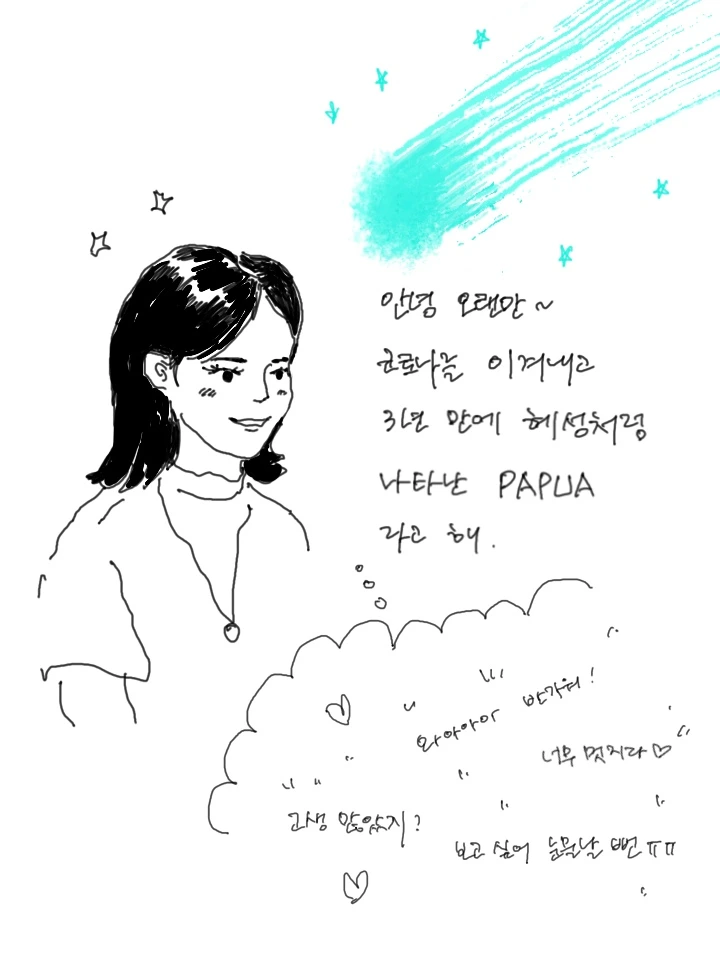 안녕 오랜만~
코로나를 이겨내고
3년 만에 혜성처럼
나타난 PAPUA
라고 해.
와아아아 반가워!
너무 멋지다♡
고생 많았지?
보고 싶어 눈물날 뻔 ㅠㅠ